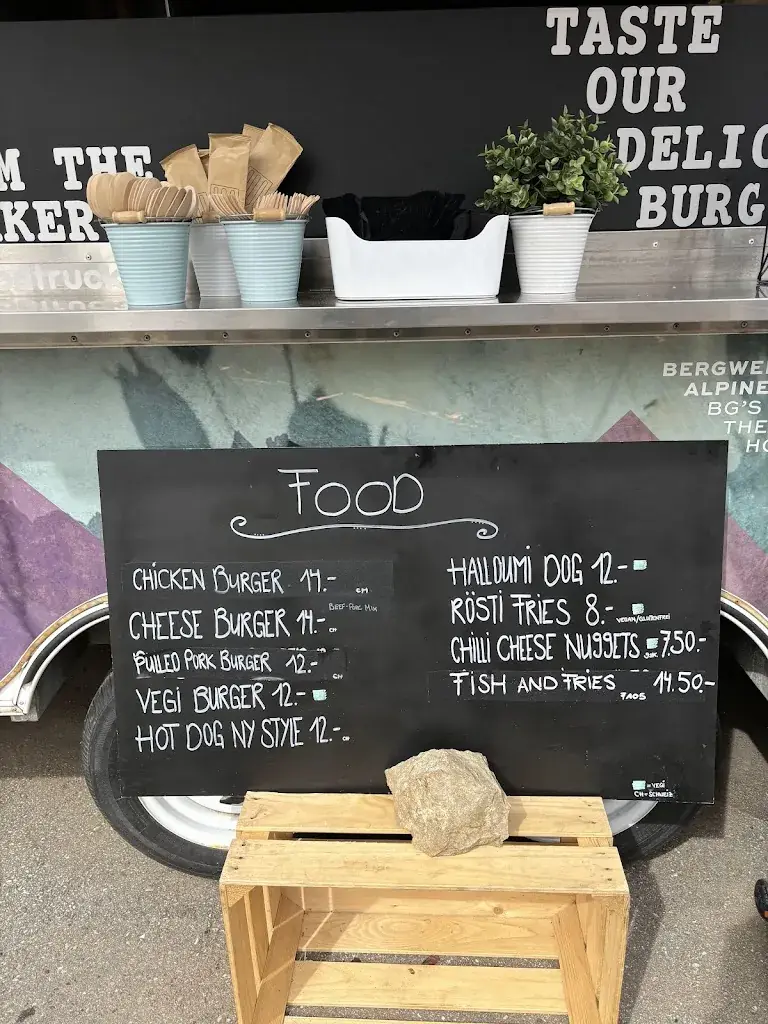 M THE
KER
TASTE
OUR
DELIC
BURG
truck
BERGWE
ALPINE
BG'S
THE
HO
FOOD
CHICKEN BURGER 14.- CH
BEEF-PORC MIX
CHEESE BURGER 14.- CH
PULLED PORK BURGER 12.- CH
VEGI BURGER 12.-
HOT DOG NY STYLE 12.- CH
HALLOUMI DOG 12.-
RÖSTI FRIES 8.-
VEGAN/GLUTENFREI
CHILLI CHEESE NUGGETS 7.50.-
FISH AND FRIES 14.50.-
FAO5
= VEGI
CH = SCHWEIZ